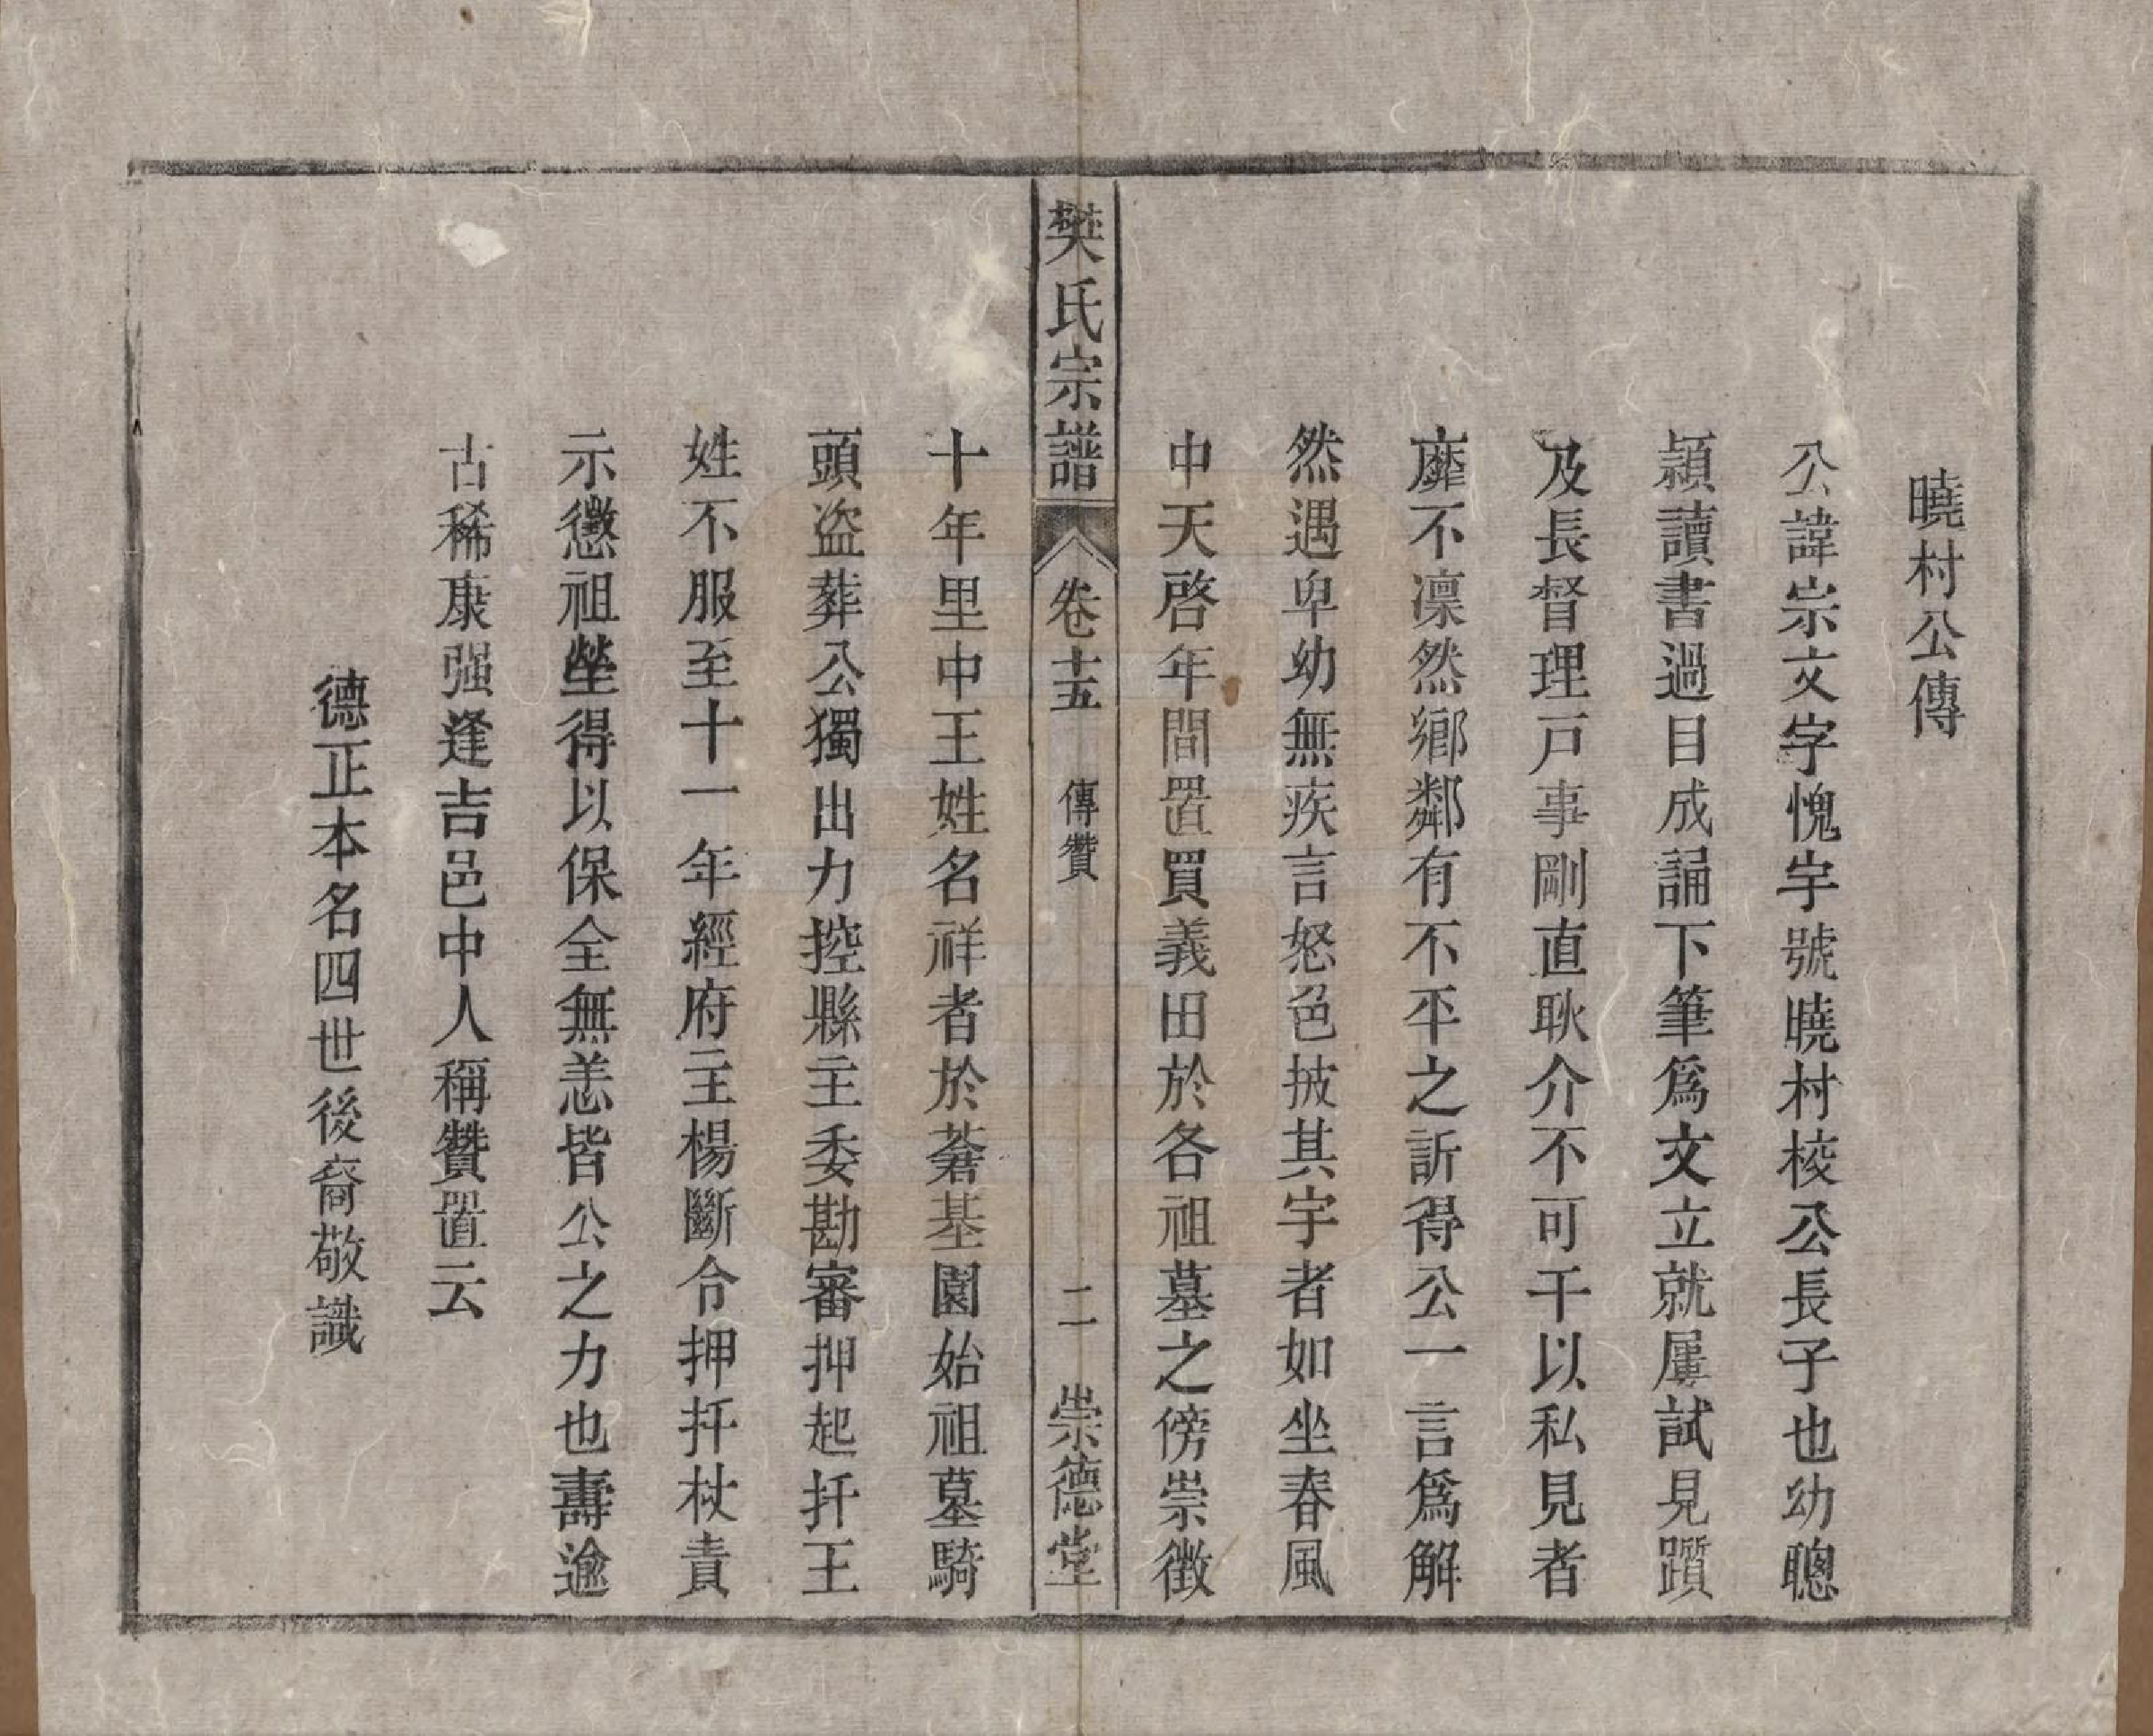 曉村公傳
公諱崇文字愧宇號曉村棱公長子也幼聰
頴讀書過目成誦下筆爲文立就屢試見躓
及長督理戸事剛直耿介不可干以私見者
靡不凜然鄉鄰有不平之訴得公一言爲解
然遇卑幼無疾言怒色披其宇者如坐春風
中天啓年間置買義田於各祖墓之傍崇徵
樊氏宗譜 卷十五 傳贊 二 崇德堂
十年里中王姓名祥者於菴基園始祖墓騎
頭盜葬公獨出力控縣主委勘審押起扦王
姓不服至十一年經府主楊斷令押扦杖責
示懲祖塋得以保全無恙皆公之力也壽逾
古稀康强逢吉邑中人稱贊置云
德正本名四世後裔敬識